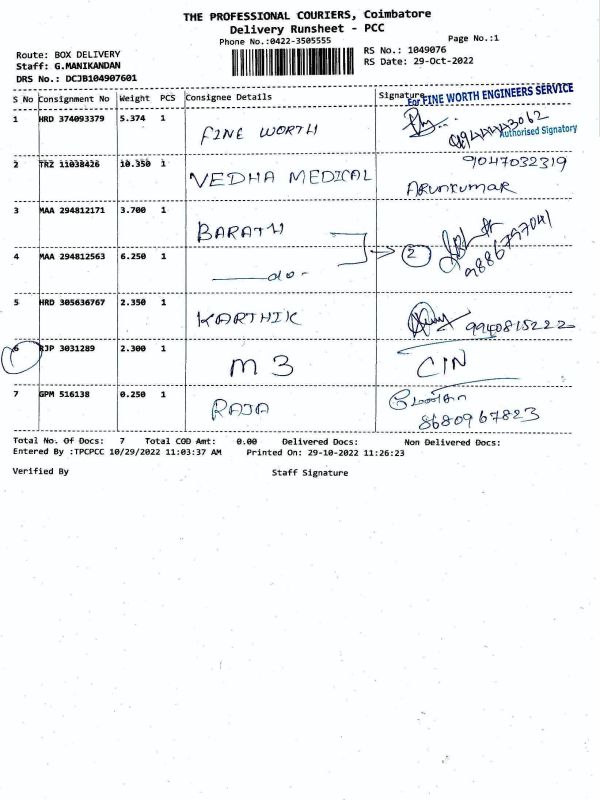 THE PROFESSIONAL COURIERS, Coimbatore
Delivery Runsheet - PCC
Phone No.:0422-3505555
Page No.:1
Route: BOX DELIVERY
RS No.: 1049076
Staff: G.MANIKANDAN
RS Date: 29-Oct-2022
DRS No.: DCJB104907601
S No Consignment No Weight PCS Consignee Details Signature
For FINE WORTH ENGINEERS SERVICE
1 HRD 374093379 5.374 1 FINE WORTH
Authorised Signatory
2 TRZ 11038426 10.350 1 VEDHA MEDICAL 9047032319
ARUNKUMAR
3 MAA 294812171 3.700 1 BARATH
4 MAA 294812563 6.250 1 do - 2
5 HRD 305636767 2.350 1 KARTHIK 9940815222
6 RJP 3031289 2.300 1 M 3 CIN
7 GPM 516138 0.250 1 RAJA
8680967823
Total No. Of Docs: 7 Total COD Amt: 0.00 Delivered Docs: Non Delivered Docs:
Entered By :TPCPCC 10/29/2022 11:03:37 AM Printed On: 29-10-2022 11:26:23
Verified By Staff Signature